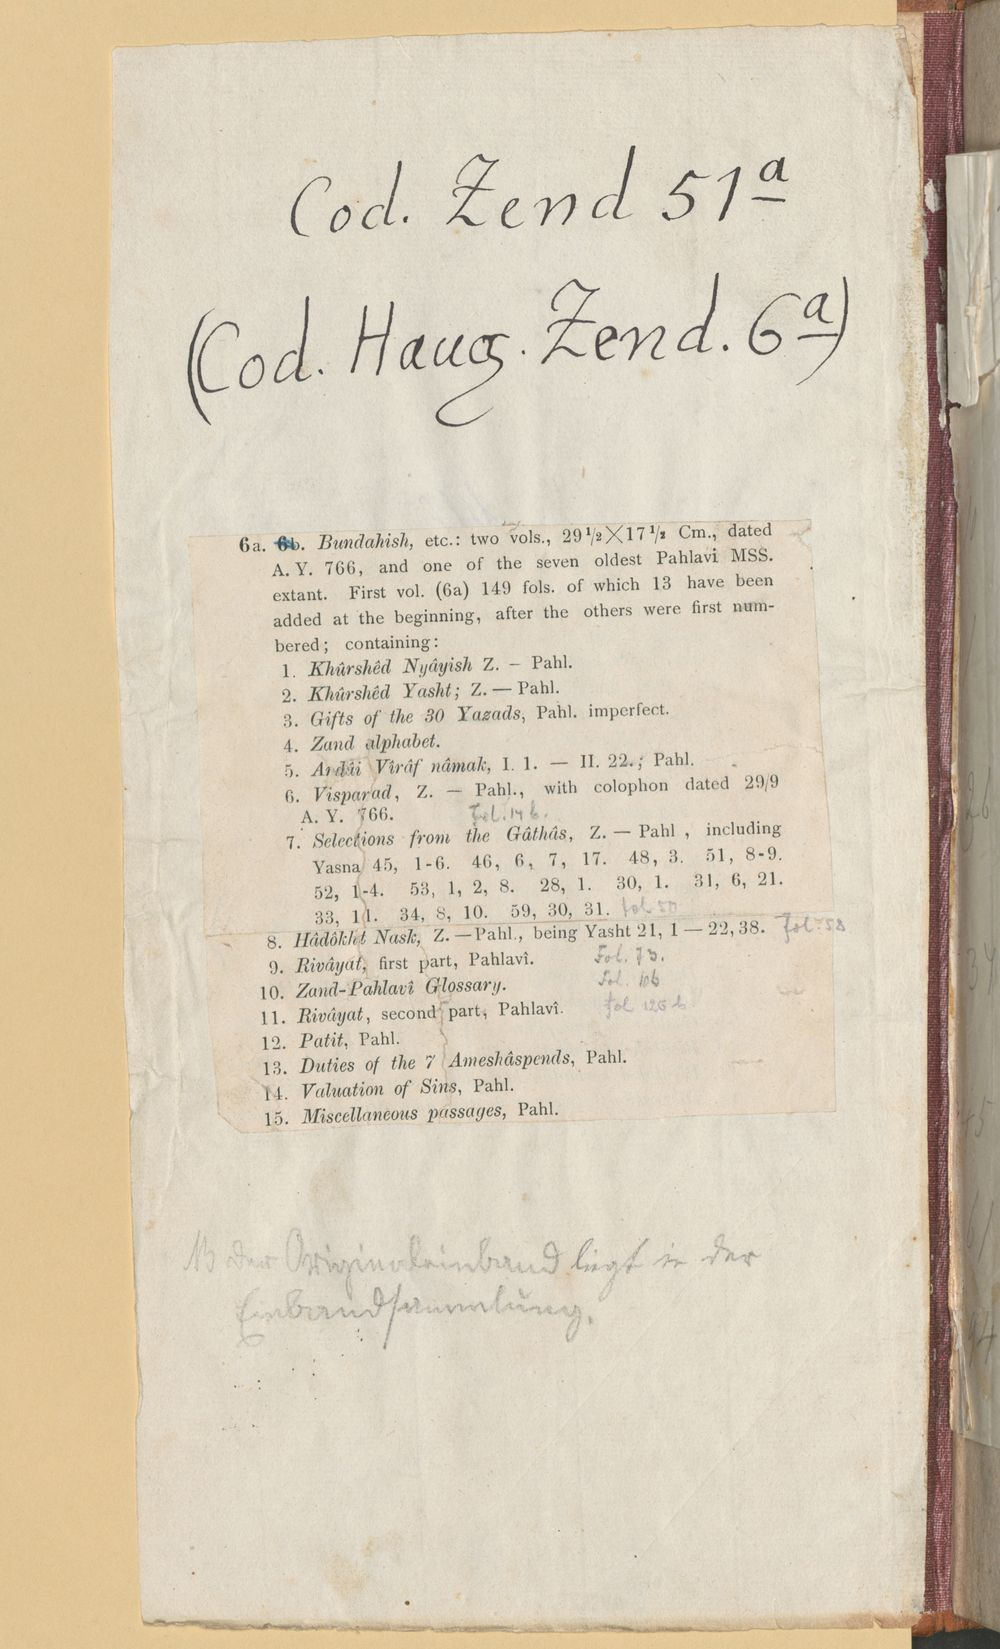 Cod. Zend 51a
(Cod. Haug. Zend. 6a)
6a. 6b. Bundahish, etc.: two vols., 29 1/2 × 17 1/2 Cm., dated
A. Y. 766, and one of the seven oldest Pahlavi MSS.
extant. First vol. (6a) 149 fols. of which 13 have been
added at the beginning, after the others were first num-
bered; containing:
1. Khûrshêd Nyâyish Z. – Pahl.
2. Khûrshêd Yasht; Z. — Pahl.
3. Gifts of the 30 Yazads, Pahl. imperfect.
4. Zand alphabet.
5. Ardâi Vîrâf nâmak, I. 1. — II. 22.; Pahl.
6. Visparad, Z. — Pahl., with colophon dated 29/9
A. Y. 766. Fol. 14 b.
7. Selections from the Gâthâs, Z. — Pahl , including
Yasna 45, 1-6. 46, 6, 7, 17. 48, 3. 51, 8-9.
52, 1-4. 53, 1, 2, 8. 28, 1. 30, 1. 31, 6, 21.
33, 11. 34, 8, 10. 59, 30, 31. fol 50
8. Hâdôkht Nask, Z. — Pahl., being Yasht 21, 1 — 22, 38. Fol. 58
9. Rivâyat, first part, Pahlavî. Fol. 73.
10. Zand-Pahlavî Glossary. Fol. 106
11. Rivâyat, second part, Pahlavî. fol 126 b
12. Patit, Pahl.
13. Duties of the 7 Ameshâspends, Pahl.
14. Valuation of Sins, Pahl.
15. Miscellaneous passages, Pahl.
NB Der Originaleinband liegt in der
Einbandsammlung.